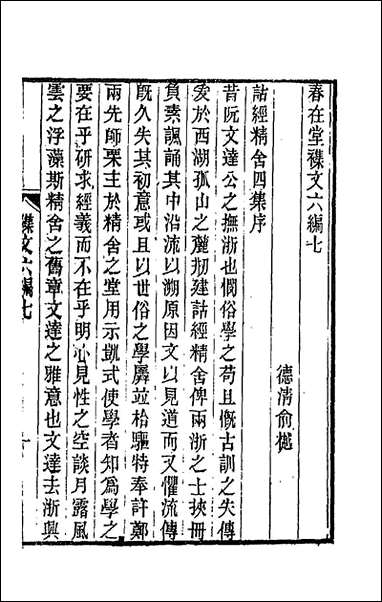 春在堂襍文六編七
德清俞樾
詁經精舍四集序
昔阮文達公之撫浙也憫俗學之苟且慨古訓之失傳
爰於西湖孤山之麓剙建詁經精舍俾兩浙之士挾冊
負素諷誦其中沿流以溯原因文以見道而又懼流傳
既久失其初意或且以世俗之學羼竝枱驅特奉許鄭
兩先師栗主於精舍之堂用示凱式使學者知為學之
要在乎研求經義而不在乎明心見性之空談月露風
雲之浮藻斯精舍之舊章文達之雅意也文達去浙興
襍文六編七